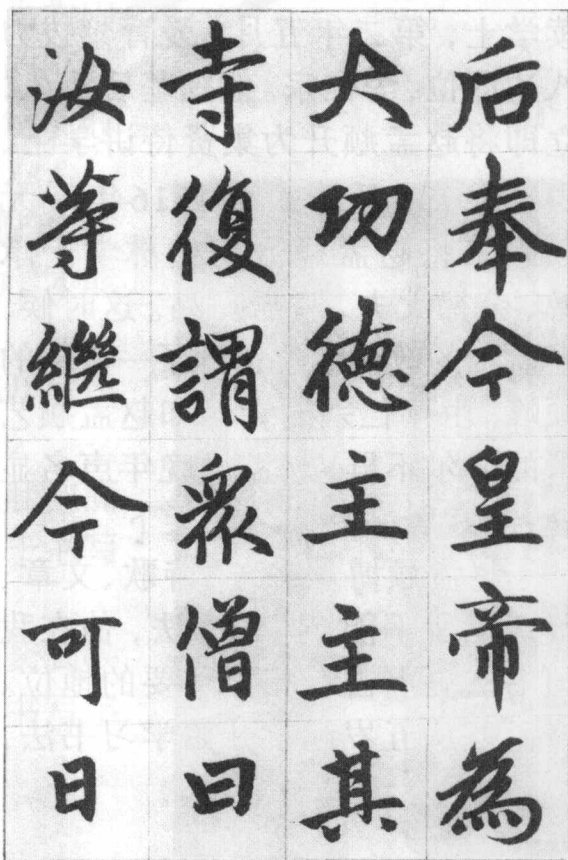 后奉今皇帝為
大切德主主其
寺復謂眾僧曰
汝等繼今可日